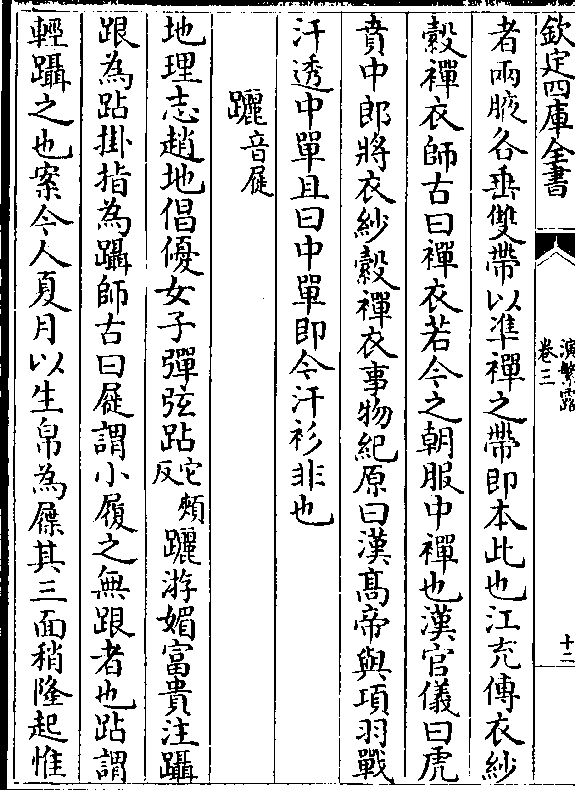 欽定四庫全書
演繁露
卷三
十二
者兩腋各垂雙帶以準襌之帶即本此也江充傳衣紗
縠襌衣師古曰襌衣若今之朝服中襌也漢官儀曰虎
賁中郎將衣紗縠襌衣事物紀原曰漢髙帝與項羽戰
汗透中單且曰中單即今汗衫非也
躧音屣
地理志趙地倡優女子彈弦跕它頰反躧游媚富貴注躡
跟為跕掛指為躡師古曰屣謂小履之無跟者也跕謂
輕躡之也案今人夏月以生帛為屧其三面稍隆起惟